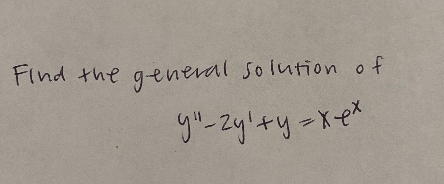 Find the general solution of
y'' - 2y' + y = xe^x